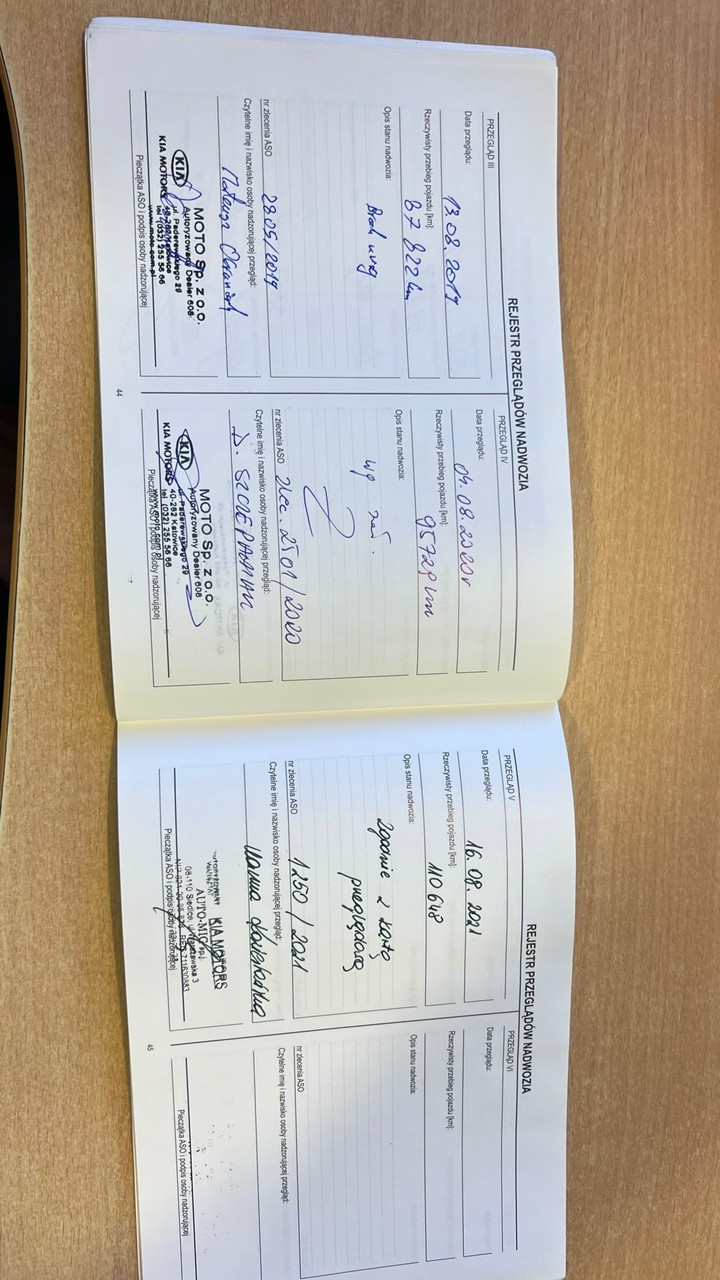 REJESTR PRZEGLĄDÓW NADWOZIA
PRZEGLĄD III
Data przeglądu:
13.08.2019
Rzeczywisty przebieg pojazdu [km]:
87 822 km
Opis stanu nadwozia:
Brak uwag
nr zlecenia ASO
28.05/2019
Czytelne imię i nazwisko osoby nadzorującej przegląd:
Mateusz
KIA
KIA MOTORS
MOTO Sp. z o.o.
Autoryzowany Dealer 608
ul. Paderewskiego 29
40-282 Katowice
tel. (032) 255 56 66
www.moto.com.pl
Pieczątka ASO i podpis osoby nadzorującej
44
PRZEGLĄD IV
Data przeglądu:
04.08.2020r
Rzeczywisty przebieg pojazdu [km]:
95729 km
Opis stanu nadwozia:
wg zał.
nr zlecenia ASO
zlec. 2501/2020
Czytelne imię i nazwisko osoby nadzorującej przegląd:
D. SZCZEPANIAK
KIA
KIA MOTORS
MOTO Sp. z o.o.
Autoryzowany Dealer 608
ul. Paderewskiego 29
40-282 Katowice
tel. (032) 255 56 66
www.moto.com.pl
Pieczątka ASO i podpis osoby nadzorującej
REJESTR PRZEGLĄDÓW NADWOZIA
PRZEGLĄD V
Data przeglądu:
16.08.2021
Rzeczywisty przebieg pojazdu [km]:
110 648
Opis stanu nadwozia:
zgodnie z kartą
przeglądową
nr zlecenia ASO
1250/2021
Czytelne imię i nazwisko osoby nadzorującej przegląd:
KIA MOTORS
08-110 Siedlce, ul. Warszawska 3
Pieczątka ASO i podpis osoby nadzorującej
45
PRZEGLĄD VI
Data przeglądu:
Rzeczywisty przebieg pojazdu [km]:
Opis stanu nadwozia:
nr zlecenia ASO
Czytelne imię i nazwisko osoby nadzorującej przegląd:
Pieczątka ASO i podpis osoby nadzorującej